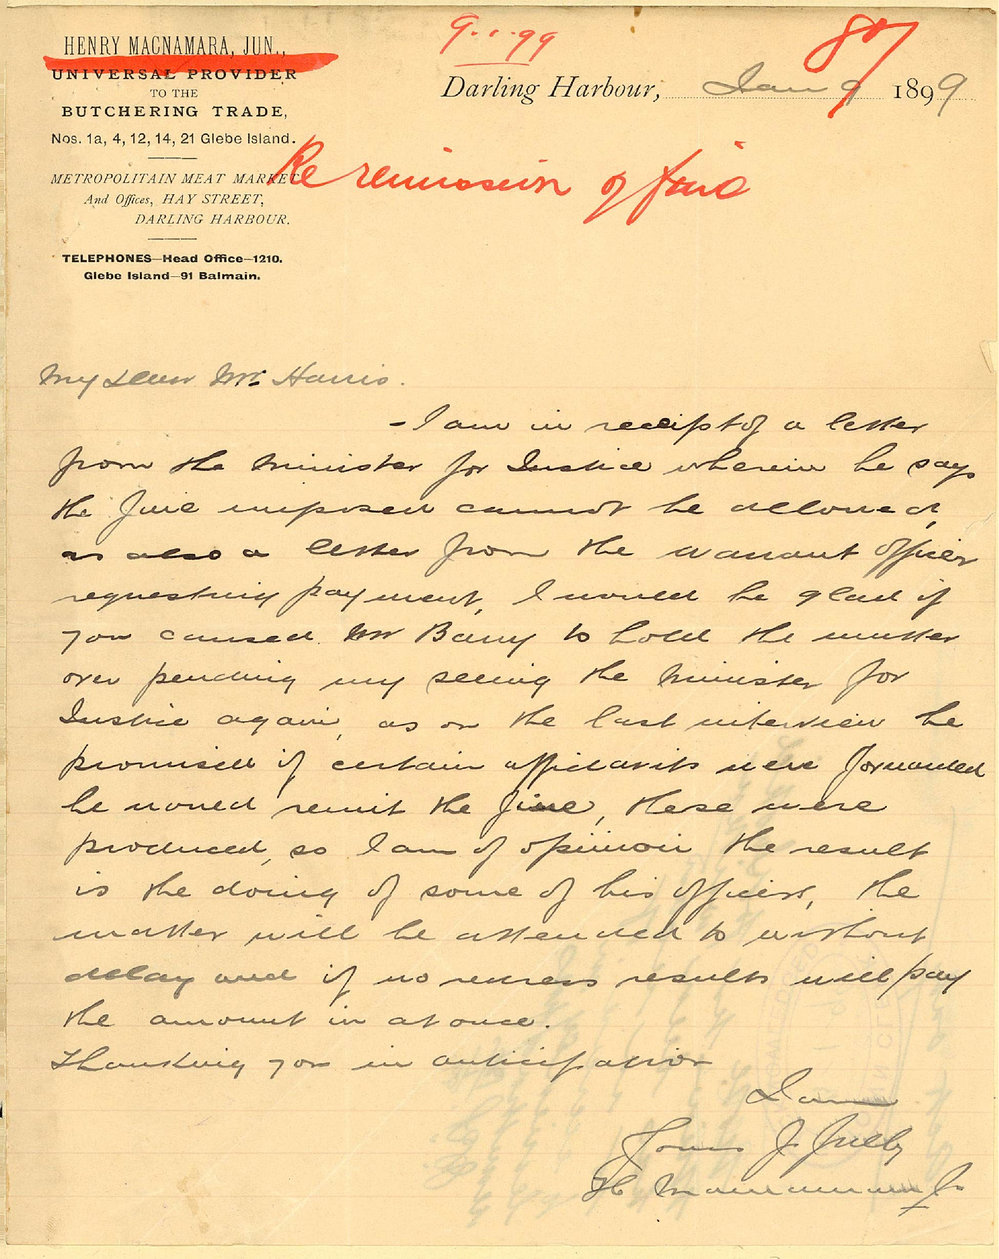 9.1.99
87
HENRY MACNAMARA, JUN.,
UNIVERSAL PROVIDER
TO THE
BUTCHERING TRADE,
Nos. 1a, 4, 12, 14, 21 Glebe Island.
METROPOLITAN MEAT MARKET
And Offices, HAY STREET,
DARLING HARBOUR.
TELEPHONES—Head Office—1210.
Glebe Island—91 Balmain.
Darling Harbour, Jan 9 1899
Re remission of fine
My Dear Mr. Harris.
-I am in receipt of a letter
from the Minister for Justice wherein he says
the fine imposed cannot be allowed,
as also a letter from the warrant officer
requesting payment, I would be glad if
you caused Mr Barry to hold the matter
over pending my seeing the Minister for
Justice again, as on the last interview he
promised if certain affidavits were forwarded
he would remit the fine, these were
produced, so I am of opinion the result
is the doing of some of his officers, the
matter will be attended to without
delay and if no redress results will pay
the amount in at once.
Thanking you in anticipation
I am
Yours f. fully
H Macnamara Jr